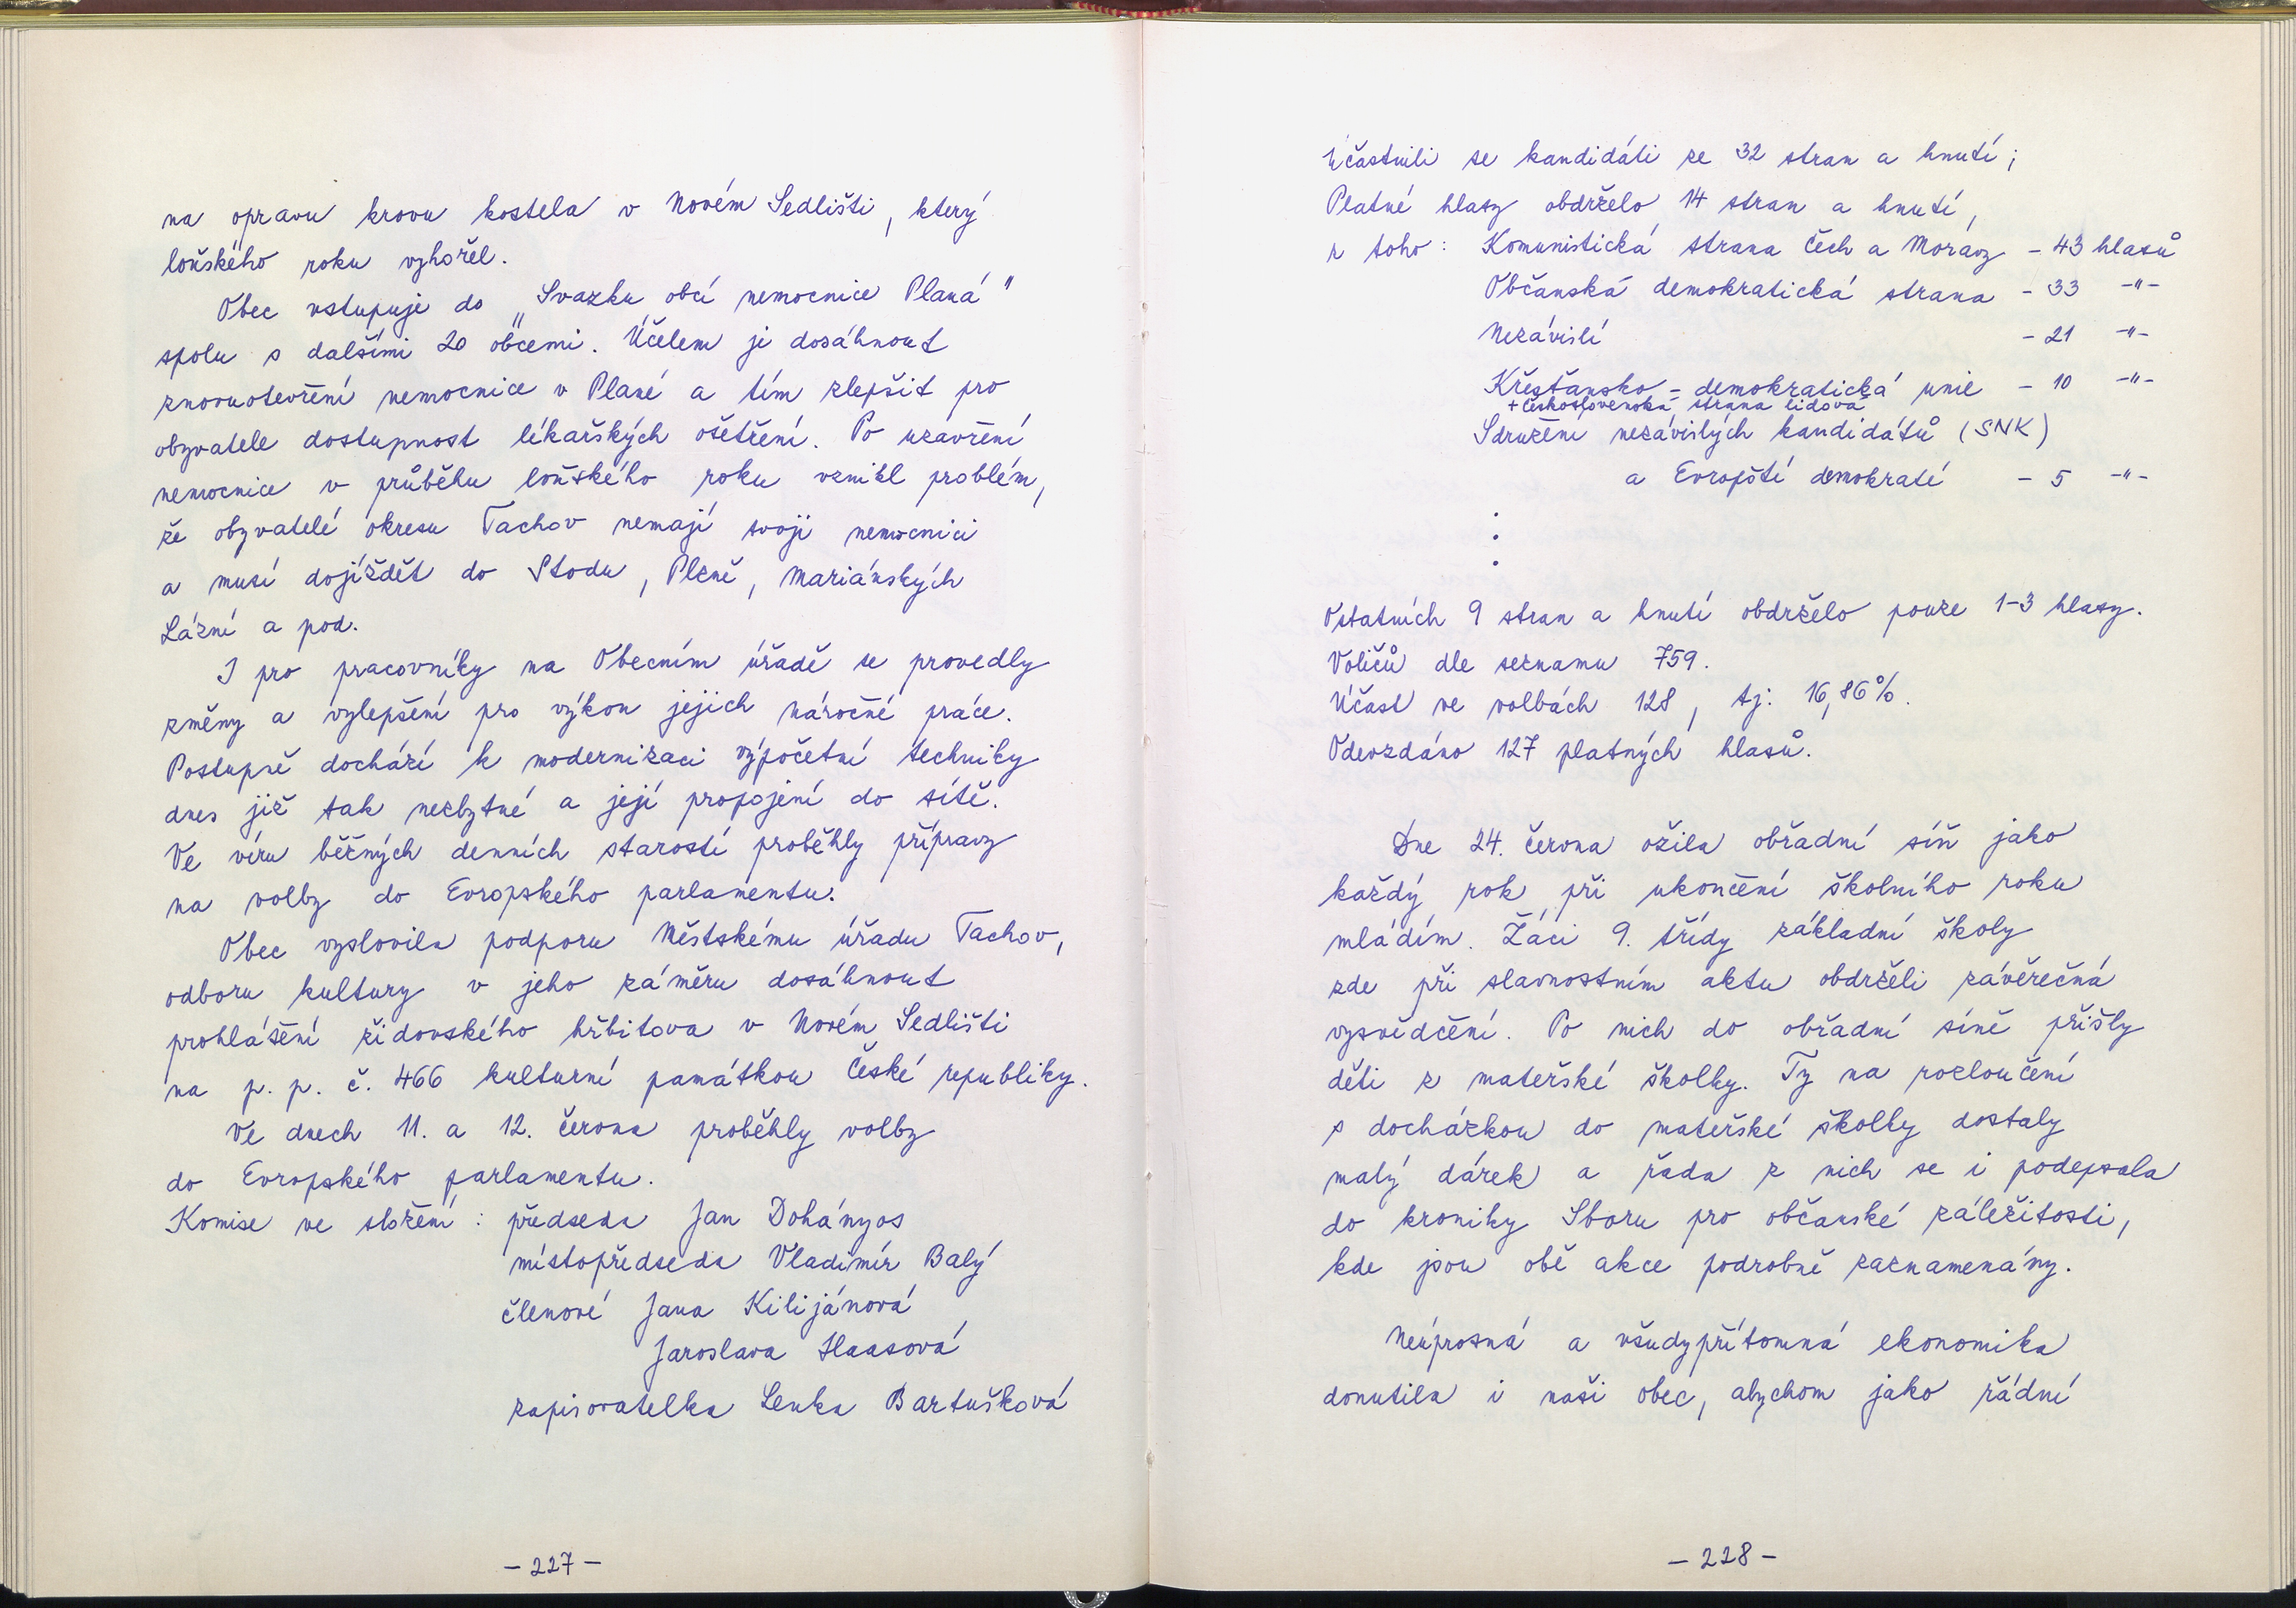 na opravu krovu kostela v Novém Sedlišti, který
loňského roku vyhořel.
Obec vstupuje do „Svazku obcí nemocnice Planá"
spolu s dalšími 20 obcemi. Účelem je dosáhnout
znovuotevření nemocnice v Plané a tím zlepšit pro
obyvatele dostupnost lékařských ošetření. Po uzavření
nemocnice v průběhu loňského roku vznikl problém,
že obyvatelé okresu Tachov nemají svoji nemocnici
a musí dojíždět do Stodu, Plzně, Mariánských
Lázní a pod.
I pro pracovníky na Obecním úřadě se provedly
změny a vylepšení pro výkon jejich náročné práce.
Postupně dochází k modernizaci výpočetní techniky
dnes již tak nezbytné a její propojení do sítě.
Ve víru běžných denních starostí proběhly přípravy
na volby do Evropského parlamentu.
Obec vyslovila podporu Městskému úřadu Tachov,
odboru kultury v jeho záměru dosáhnout
prohlášení židovského hřbitova v Novém Sedlišti
na p. p. č. 466 kulturní památkou České republiky.
Ve dnech 11. a 12. června proběhly volby
do Evropského parlamentu.
Komise ve složení: předseda Jan Dohányos
místopředseda Vladimír Balý
členové Jana Kilijánová
Jaroslava Haasová
zapisovatelka Lenka Bartušková
- 227 -
Účastnili se kandidáti ze 32 stran a hnutí;
Platné hlasy obdrželo 14 stran a hnutí,
z toho: Komunistická strana Čech a Moravy - 43 hlasů
Občanská demokratická strana - 33 -"-
Nezávislí - 21 -"-
Křesťansko - demokratická unie - 10 -"-
+ československá strana lidová
Sdružení nezávislých kandidátů (SNK)
a Evropští demokraté - 5 -"-
.
.
.
Ostatních 9 stran a hnutí obdrželo pouze 1-3 hlasy.
Voličů dle seznamu 759.
Účast ve volbách 128, tj. 16,86%.
Odevzdáno 127 platných hlasů.
Dne 24. června ožila obřadní síň jako
každý rok při ukončení školního roku
mládím. Žáci 9. třídy základní školy
zde při slavnostním aktu obdrželi závěrečná
vysvědčení. Po nich do obřadní síně přišly
děti z mateřské školky. Ty na rozloučení
s docházkou do mateřské školky dostaly
malý dárek a řada z nich se i podepsala
do kroniky Sboru pro občanské záležitosti,
kde jsou obě akce podrobně zaznamenány.
Neúprosná a všudypřítomná ekonomika
donutila i naši obec, abychom jako řádní
- 228 -